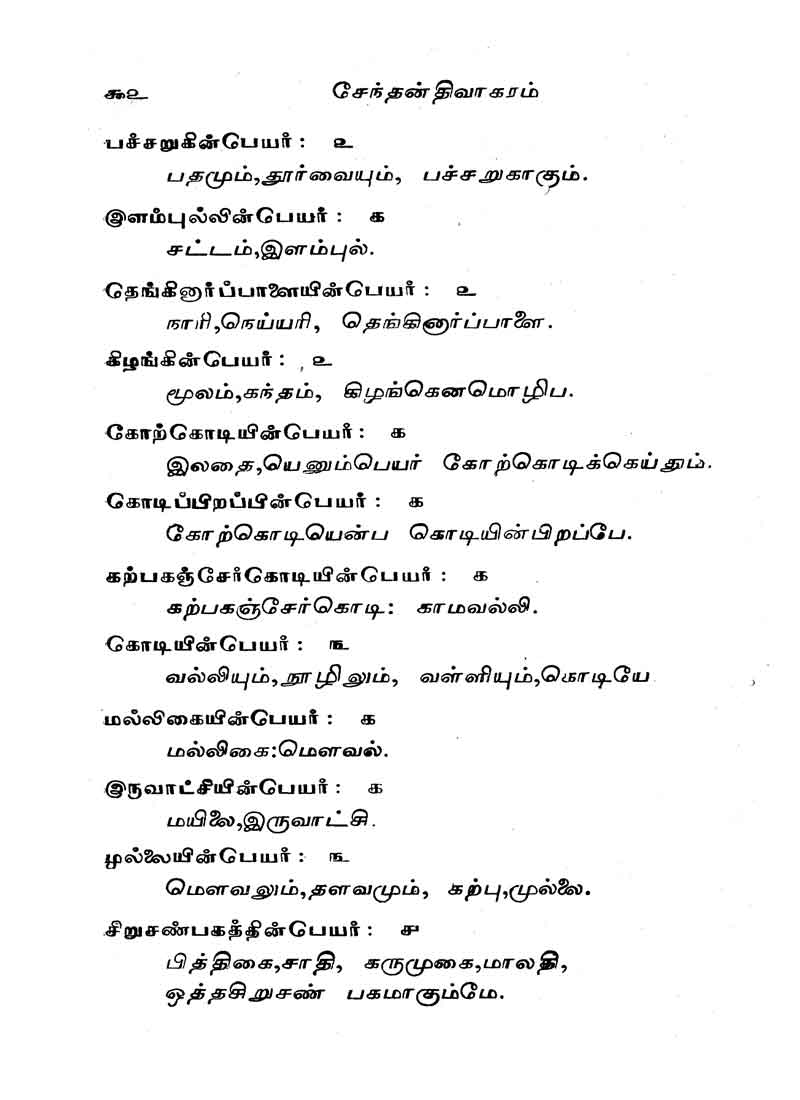 ௯௨ சேந்தன்திவாகரம்
பச்சறுகின்பெயர் : ௨
பதமும்,தூர்வையும், பச்சறுகாகும்.
இளம்புல்லின்பெயர் : ௧
சட்டம்,இளம்புல்.
தெங்கினூர்ப்பாளையின்பெயர் : ௨
நாரி,நெய்யரி, தெங்கினூர்ப்பாளை.
கிழங்கின்பெயர் : ௨
மூலம்,கந்தம், கிழங்கெனமொழிப.
கோற்கொடியின்பெயர் : ௧
இலதை,யெனும்பெயர் கோற்கொடிக்கெய்தும்.
கொடிப்பிறப்பின்பெயர் : ௧
கோற்கொடியென்ப கொடியின்பிறப்பே.
கற்பகஞ்சேர்கொடியின்பெயர் : ௧
கற்பகஞ்சேர்கொடி: காமவல்லி.
கொடியின்பெயர் : ௩
வல்லியும்,நூழிலும், வள்ளியும்,கொடியே
மல்லிகையின்பெயர் : ௧
மல்லிகை:மௌவல்.
இருவாட்சியின்பெயர் : ௧
மயிலை,இருவாட்சி.
முல்லையின்பெயர் : ௩
மௌவலும்,தளவமும், கற்பு,முல்லை.
சிறுசண்பகத்தின்பெயர் : ௪
பித்திகை,சாதி, கருமுகை,மாலதி,
ஒத்தசிறுசண் பகமாகும்மே.